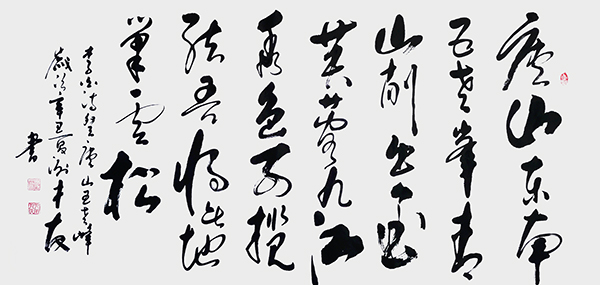 廬山东南
五老峰青
山削出金
芙蓉九江
秀色可揽
结吾将此地
巢雲松
李白诗登廬山五老峰
歲次辛丑夏
书